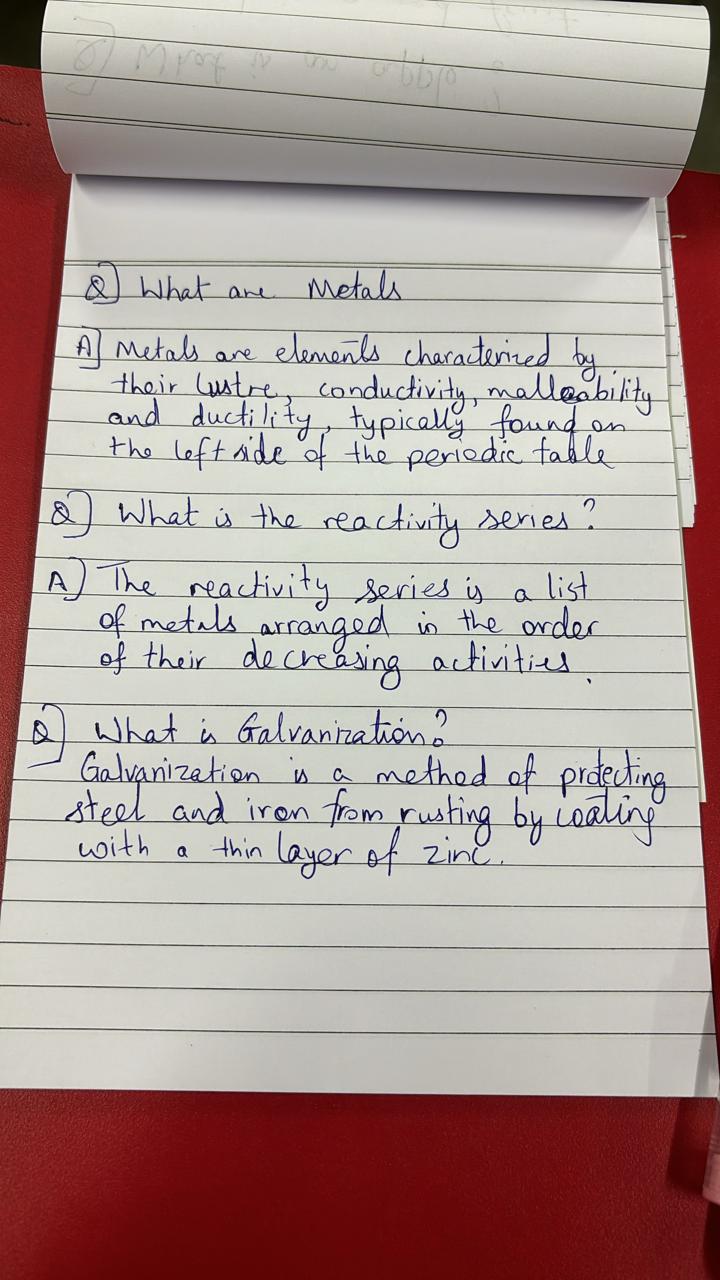 Q] What is an apple ?
Q] What are Metals
A] Metals are elements characterized by
their lustre, conductivity, malleability
and ductility, typically found on
the left side of the periodic table
Q] What is the reactivity series?
A] The reactivity series is a list
of metals arranged in the order
of their decreasing activities.
Q] What is Galvanization?
Galvanization is a method of protecting
steel and iron from rusting by coating
with a thin layer of zinc.